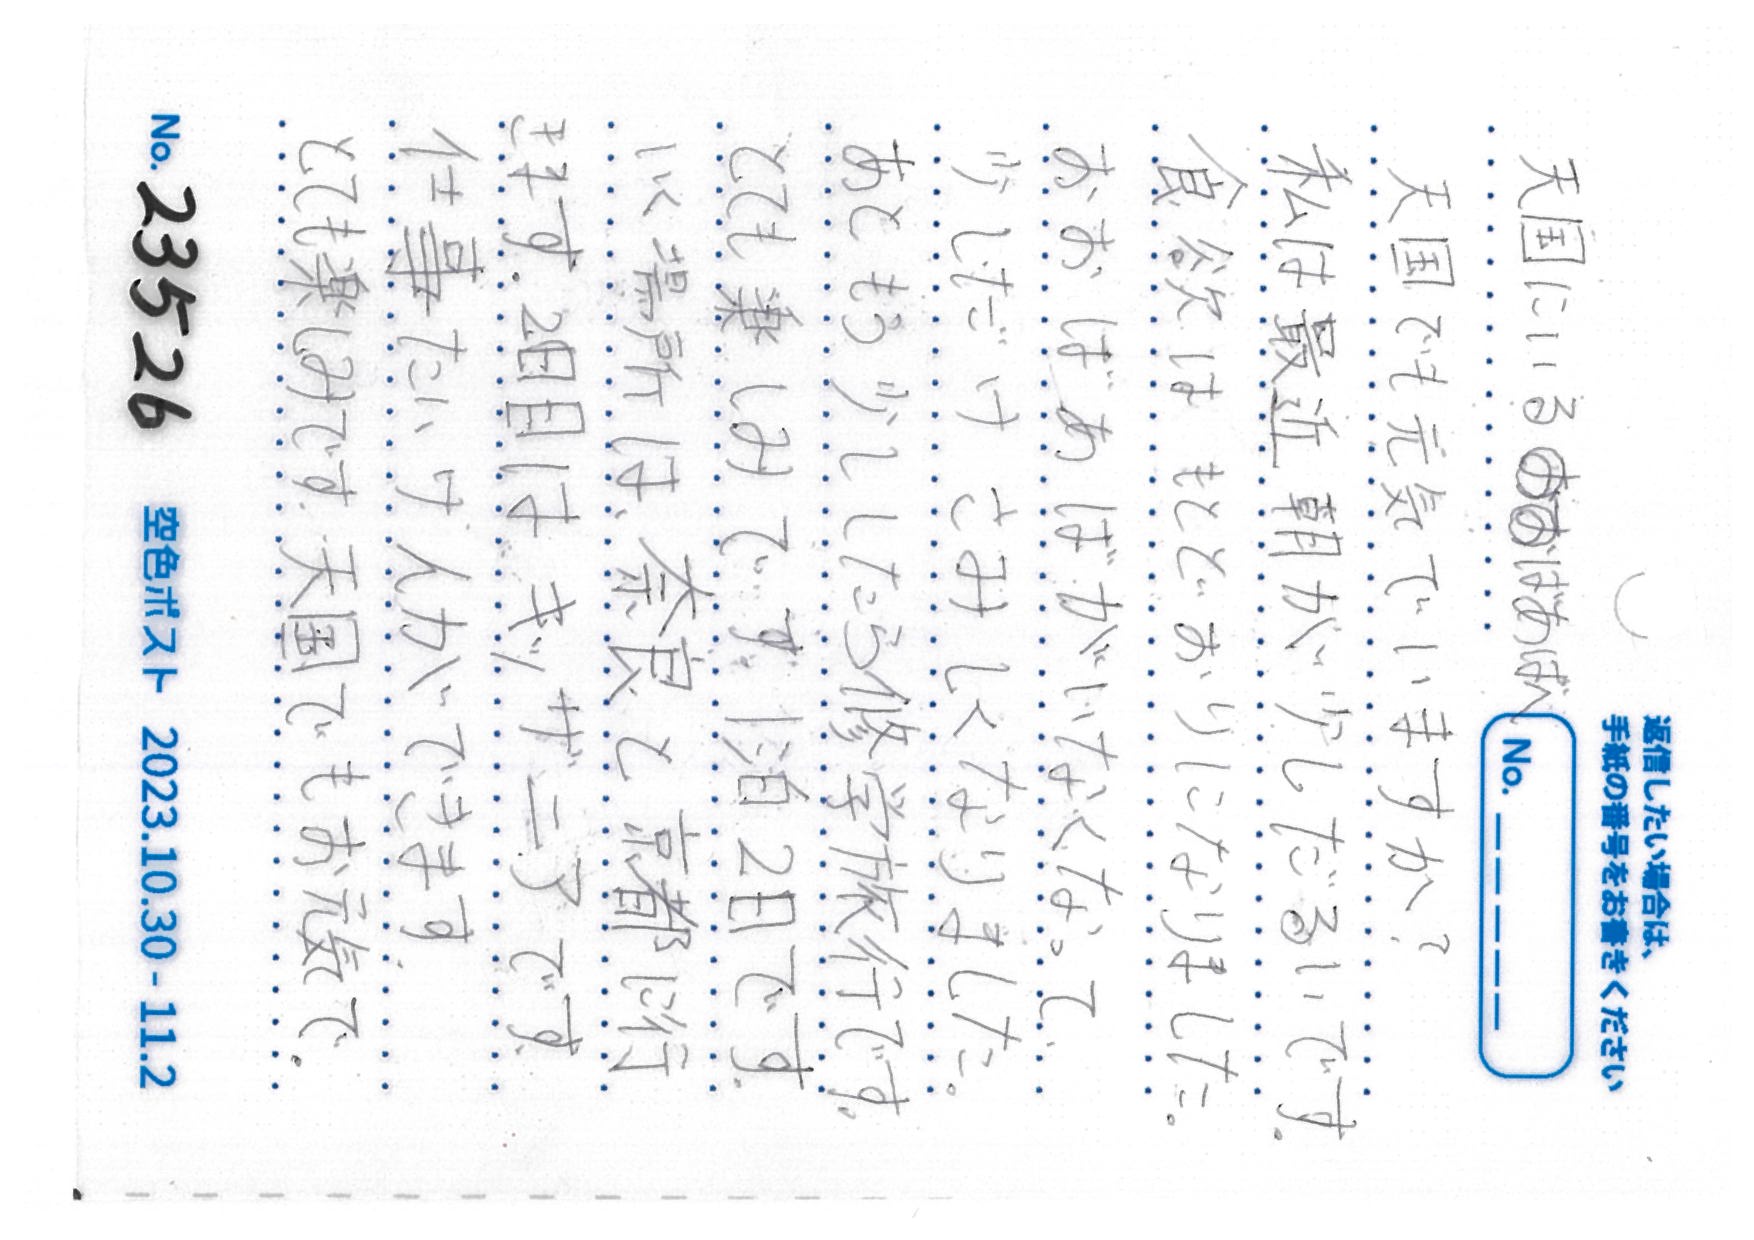 返信したい場合は、
手紙の番号をお書きください
No. _ _ _ _ _
天国にいるおおばあばへ
天国でも元気でいますか?
私は最近朝が少しだるいです。
食欲はもとどおりになりました。
おおばあばがいなくなって、
少しだけさみしくなりました。
あともう少ししたら修学旅行です。
とても楽しみです。1泊2日です。
いく場所は、奈良と京都に行
きます。2日目は、キッザニアです。
仕事たいけんができます。
とても楽しみです。天国でもお元気で。
No. 23526 空色ポスト 2023.10.30 - 11.2